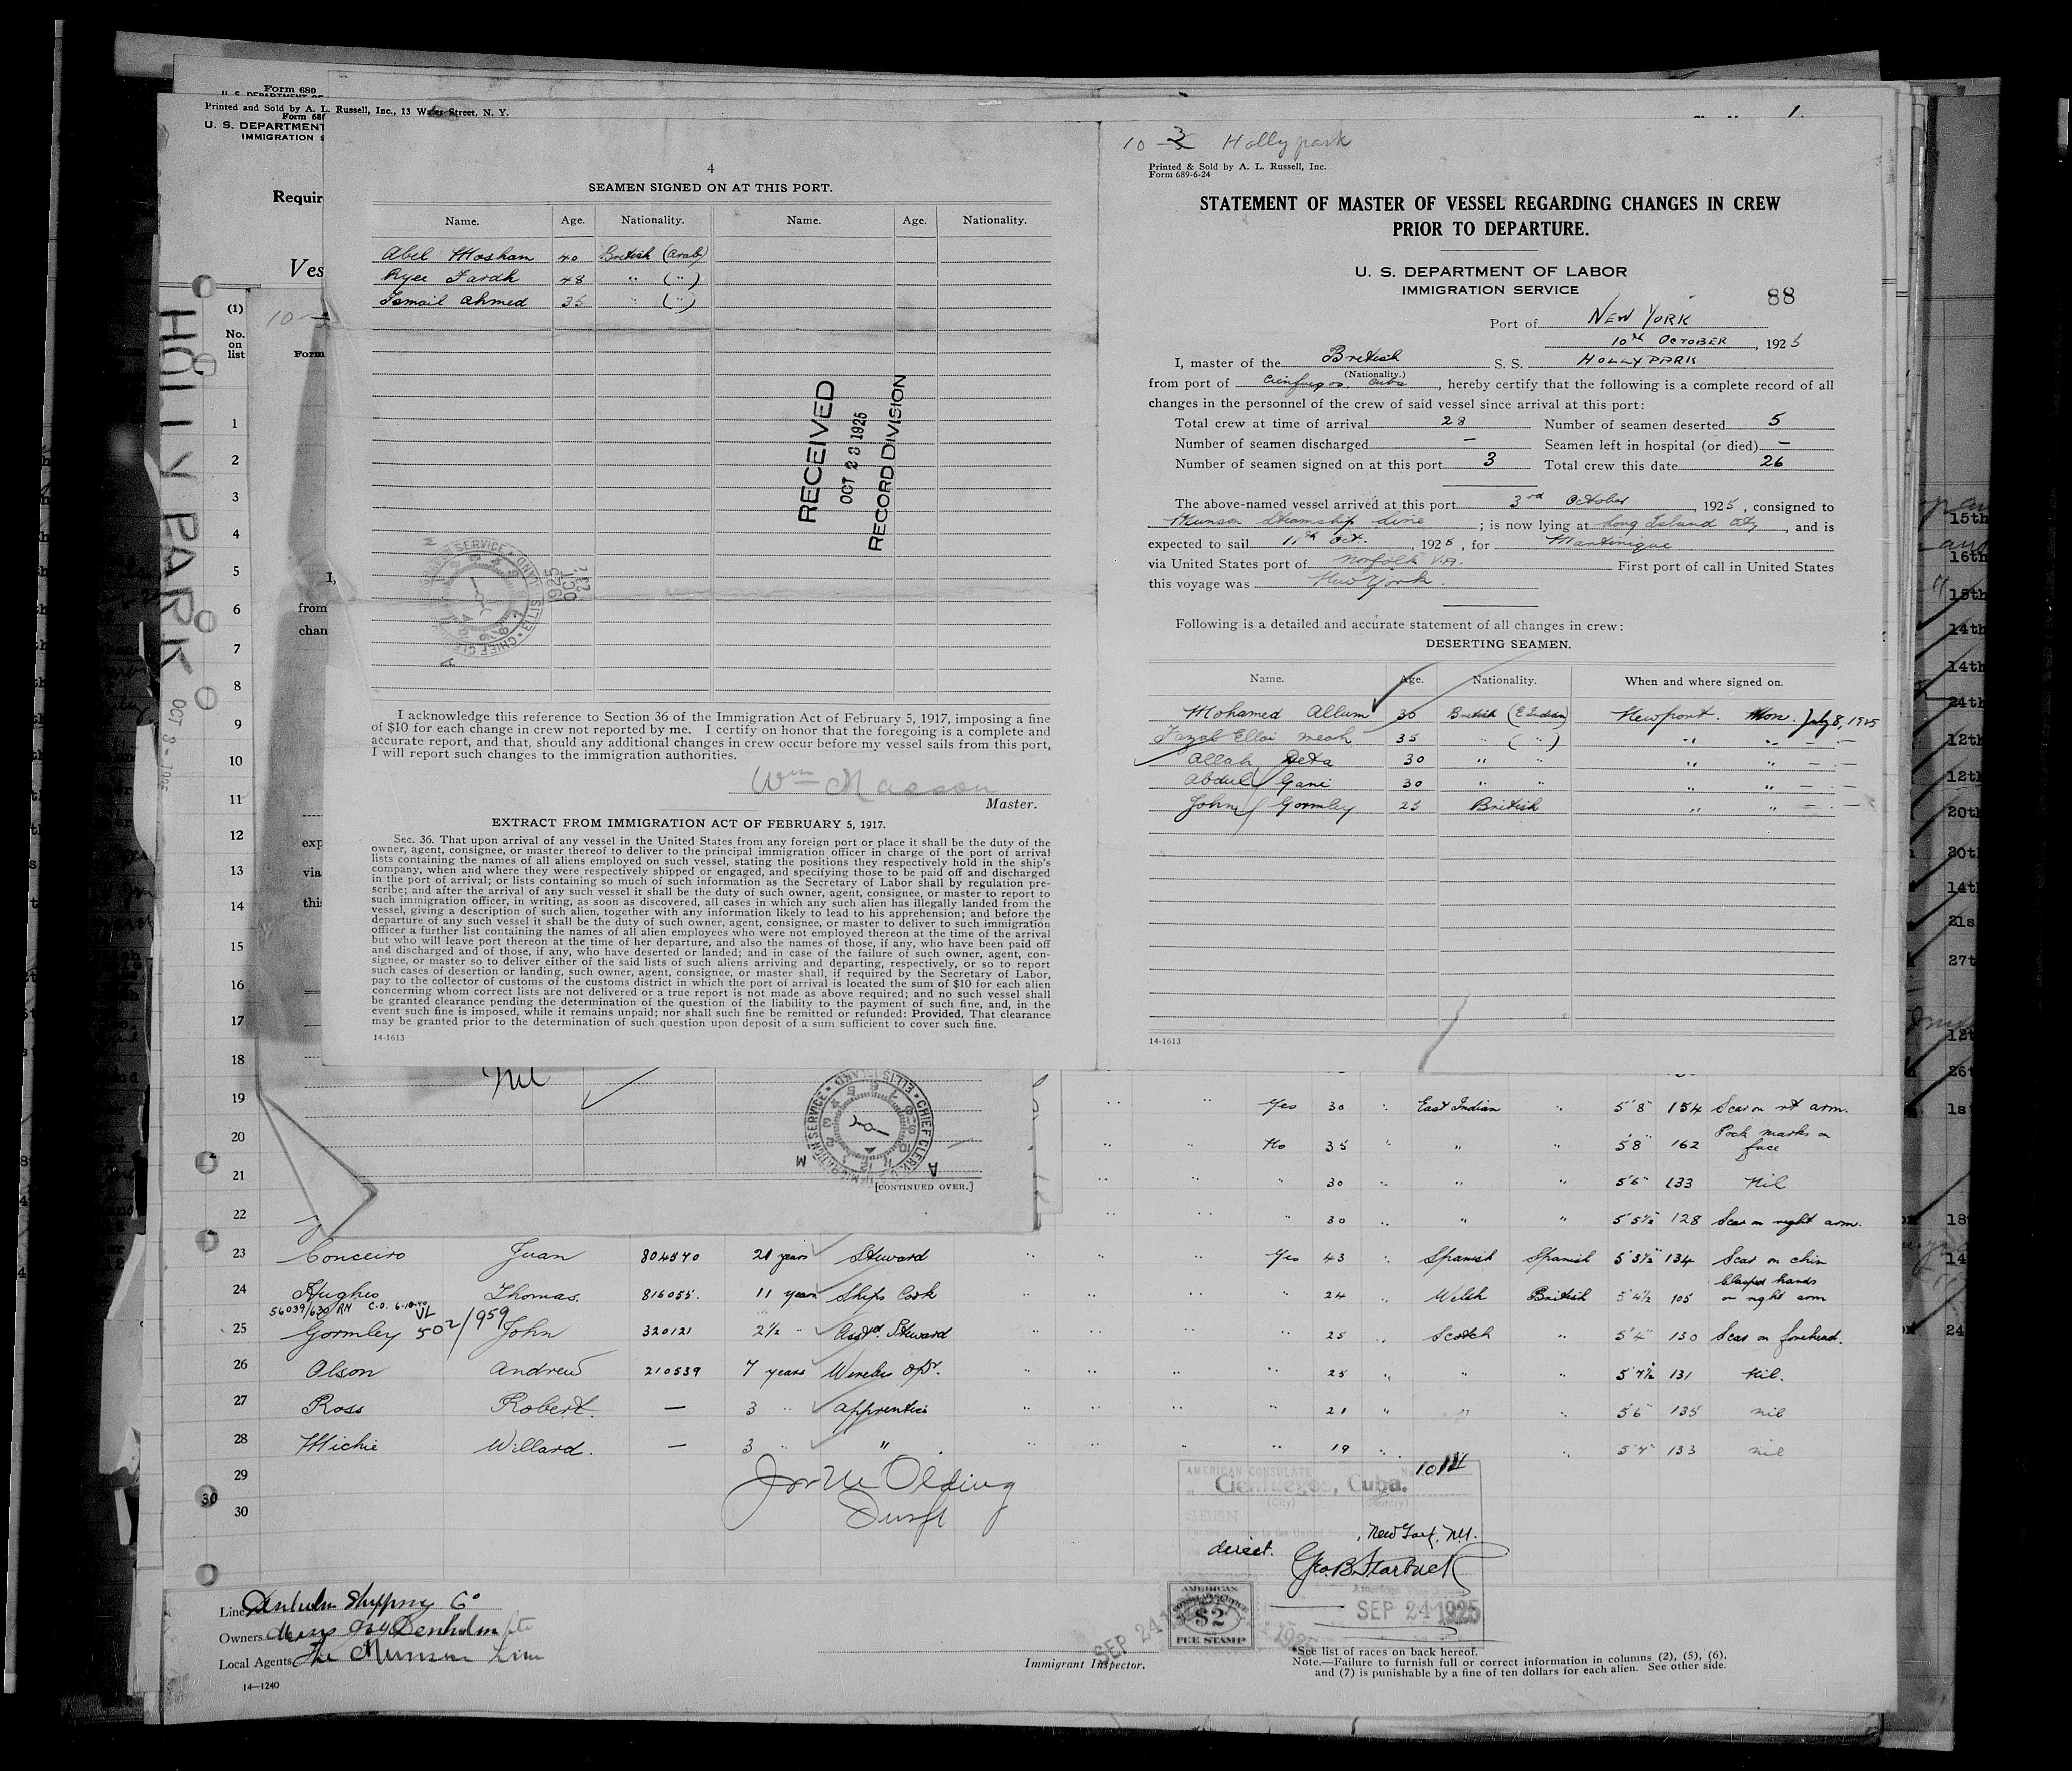 Form 680
Printed and Sold by A. L. Russell, Inc., 13 Water Street, N. Y.
Form 680
U. S. DEPARTMENT
IMMIGRATION S
Requir
Ves
(1)
No.
on
list
10 -
Form
HOLLY PARK
OCT 3 - 1925
1
2
3
4
5
6
7
8
9
10
11
12
13
14
15
16
17
18
19
20
21
22
I,
from
chan
exp
via
this
4
SEAMEN SIGNED ON AT THIS PORT.
Name. Age. Nationality. Name. Age. Nationality.
Abel Mosham 40 British (Arab)
Ayee Farah 48 " ( " )
Ismail Ahmed 35 " ( " )
RECEIVED
OCT 23 1925
RECORD DIVISION
I acknowledge this reference to Section 36 of the Immigration Act of February 5, 1917, imposing a fine
of $10 for each change in crew not reported by me. I certify on honor that the foregoing is a complete and
accurate report, and that, should any additional changes in crew occur before my vessel sails from this port,
I will report such changes to the immigration authorities.
Wm Masson
Master.
EXTRACT FROM IMMIGRATION ACT OF FEBRUARY 5, 1917.
Sec. 36. That upon arrival of any vessel in the United States from any foreign port or place it shall be the duty of the
owner, agent, consignee, or master thereof to deliver to the principal immigration officer in charge of the port of arrival
lists containing the names of all aliens employed on such vessel, stating the positions they respectively hold in the ship's
company, when and where they were respectively shipped or engaged, and specifying those to be paid off and discharged
in the port of arrival; or lists containing so much of such information as the Secretary of Labor shall by regulation pre-
scribe; and after the arrival of any such vessel it shall be the duty of such owner, agent, consignee, or master to report to
such immigration officer, in writing, as soon as discovered, all cases in which any such alien has illegally landed from the
vessel, giving a description of such alien, together with any information likely to lead to his apprehension; and before the
departure of any such vessel it shall be the duty of such owner, agent, consignee, or master to deliver to such immigration
officer a further list containing the names of all alien employees who were not employed thereon at the time of the arrival
but who will leave port thereon at the time of her departure, and also the names of those, if any, who have been paid off
and discharged and of those, if any, who have deserted or landed; and in case of the failure of such owner, agent, con-
signee, or master so to deliver either of the said lists of such aliens arriving and departing, respectively, or so to report
such cases of desertion or landing, such owner, agent, consignee, or master shall, if required by the Secretary of Labor,
pay to the collector of customs of the customs district in which the port of arrival is located the sum of $10 for each alien
concerning whom correct lists are not delivered or a true report is not made as above required; and no such vessel shall
be granted clearance pending the determination of the question of the liability to the payment of such fine, and, in the
event such fine is imposed, while it remains unpaid; nor shall such fine be remitted or refunded: Provided, That clearance
may be granted prior to the determination of such question upon deposit of a sum sufficient to cover such fine.
14-1613
10 - 3 Hollypark
Printed & Sold by A. L. Russell, Inc.
Form 689-6-24
STATEMENT OF MASTER OF VESSEL REGARDING CHANGES IN CREW
PRIOR TO DEPARTURE.
U. S. DEPARTMENT OF LABOR
IMMIGRATION SERVICE
88
Port of New York
10th October, 1925
I, master of the British S. S. Hollypark
(Nationality.)
from port of Cienfuegos. Cuba, hereby certify that the following is a complete record of all
changes in the personnel of the crew of said vessel since arrival at this port:
Total crew at time of arrival 28 Number of seamen deserted 5
Number of seamen discharged — Seamen left in hospital (or died) —
Number of seamen signed on at this port 3 Total crew this date 26
The above-named vessel arrived at this port 3rd October, 1925, consigned to
Munson Steamship Line; is now lying at Long Island City, and is
expected to sail 11th Oct., 1925, for Martinique
via United States port of Norfolk VA. First port of call in United States
this voyage was New York.
Following is a detailed and accurate statement of all changes in crew:
DESERTING SEAMEN.
Name. Age. Nationality. When and where signed on.
Mohamed Allum 30 British (E Indian) Newport. Mon. July 8, 1925
Fazal Ellai Meah 35 " ( " ) " " - -
Allah Deta 30 " " " " - -
Abdul Gani 30 " " " " - -
John Gormley 25 British " " - -
14-1613
Nil
ELLIS ISLAND CHIEF CLERK IMMIGRATION SERVICE
[CONTINUED OVER.]
" " Yes 30 " East Indian " 5'8" 154 Scar on rt arm.
" " No 35 " " 5'8" 162 Pock marks on face
" " " 30 " " " 5'6" 133 Nil
" " " 30 " " " 5'5½" 128 Scar on right arm.
23 Conceiro Juan 804570 21 years Steward " " Yes 43 " Spanish Spanish 5'3½" 134 Scar on chin
24 Hughes Thomas. 816055. 11 years Ships Cook " " " 24 " Welsh British 5'4½ 105 Clasped hands on right arm
56039/630 RN C.O. 6-10-40
VL
502/959
25 Gormley John 320121 2½ " Asstd. Steward " " " 25 " Scotch " 5'4" 130 Scar on forehead.
26 Olson Andrew 210539 7 years Wireless Opr. " " " 25 " " " 5'7½ 131 Nil.
27 Ross Robert. — 3 " Apprentice " " " 21 " " " 5'6" 135 nil
28 Michie Willard. — 3 " " " " " 19 " " 5'7" 133 nil
29
30
AMERICAN CONSULATE
Cienfuegos, Cuba.
(City) (Country)
SEEN
New York, N.Y.
direct.
Geo. B. Starbuck
SEP 24 1925
AMERICAN
$2
FEE STAMP
SEP 24 1925
Line Denholm Shipping Co
Owners Messrs J & J Denholm
Local Agents The Munson Line
14—1240
Immigrant Inspector.
*See list of races on back hereof.
Note.—Failure to furnish full or correct information in columns (2), (5), (6),
and (7) is punishable by a fine of ten dollars for each alien. See other side.
15th
16th
15th
14th
14th
24th
12th
12th
20th
20th
14th
21s
27th
12t
26t
1s
18
14
24